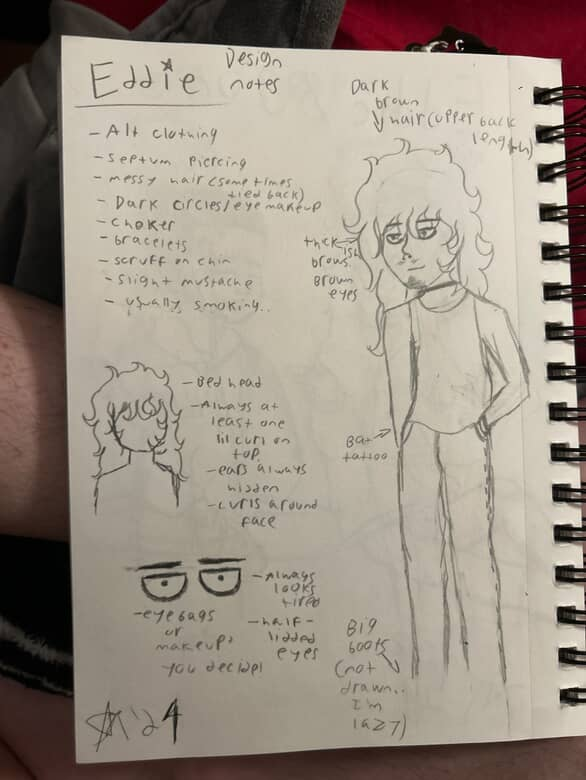 Eddie
Design
notes
- Alt clothing
- septum piercing
- messy hair (sometimes
tied back)
- Dark circles/eye makeup
- choker
- bracelets
- scruff on chin
- slight mustache
- usually smoking..
Dark
brown
hair (upper back
length)
thick
ish
brows.
Brown
eyes
Bat
tattoo
- Bed head
- Always at
least one
lil curl on
top.
- ears always
hidden
- curls around
face
- Always
looks
tired
- half-
lidded
eyes
- eyebags
or
makeup?
you decide!
Big
boots
(not
drawn..
I'm
lazy)
'24